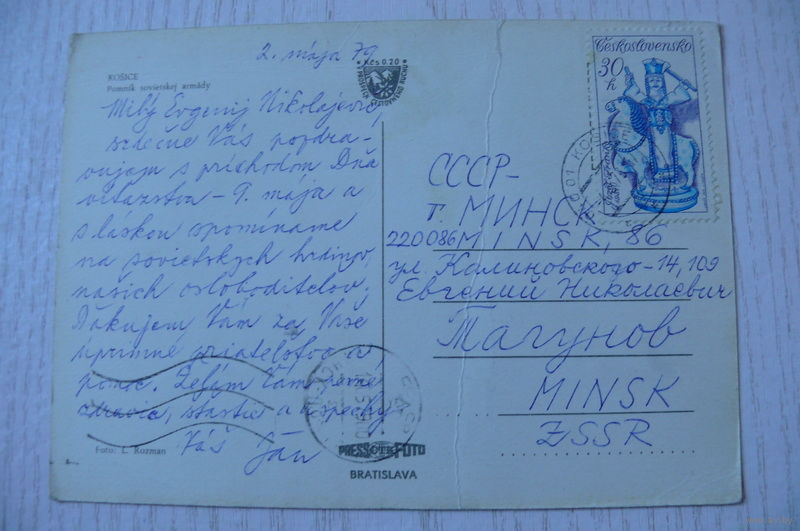 2. mája 79
KOŠICE
Pomník sovietskej armády
Kčs 0.20
Milý Evgenij Nikolajevič,
srdečne Vás pozdra-
vujem s príchodom Dňa
víťazstva - 9. mája a
s láskou spomíname
na sovietskych hrdinov,
našich osloboditeľov.
Ďakujem Vám za Vaše
úprimné priateľstvo a
pomoc. Želám Vám pevné
zdravie, šťastie a úspechy
Váš Ján
Foto: L. Rozman
PRESSFOTO
BRATISLAVA
Československo
30 h
СССР-
г. МИНСК
220086 MINSK, 86
ул. Калиновского-14, 109
Евгений Николаевич
Тагунов
MINSK
ZSSR